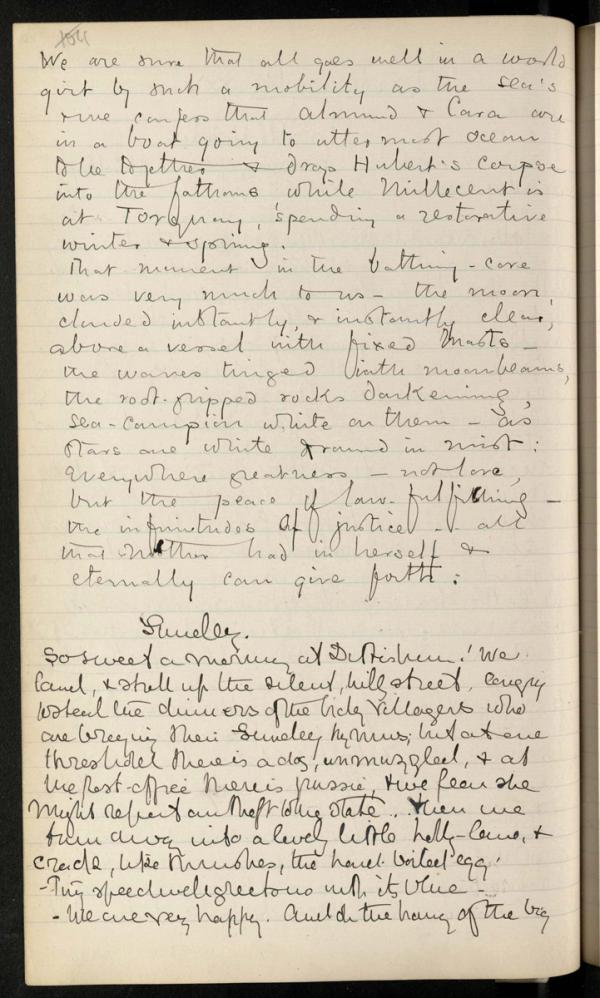 154
We are sure that all goes well in a world
girt by such a mobility as the sea's
& we confess that Almund & Cara are
in a boat going to uttermost ocean
to be together & drop Hubert's corpse
into the fathoms while Millecent is
at Torquay, spending a restorative
winter & spring.
That moment in the bathing-cove
was very much to us – the moon,
clouded instantly, & instantly clear,
above a vessel with fixed masts –
the waves tinged with moonbeams,
the root-gripped rocks darkening,
sea-campion white on them – as
stars are white around in mist:
Everywhere greatness – not love,
but the peace of law-fulfilling –
the infinitudes of justice – all
that Mother had in herself &
eternally can give forth:
Sunday.
So sweet a morning at Dittisham! We
land, & stroll up the silent, hilly street, longing
to steal the dinners of the holy villagers who
are braying their Sunday hymns; but at one
threshold there is a dog, unmuzzled, & at
the post-office there is pussie, & we fear she
might report our theft to the State.. Then we
turn away into a lovely little holly-lane, &
crack, like thrushes, the hard-boiled egg.
– Tiny speedwell greets us with its blue –
– We are very happy. And on the hang of the big